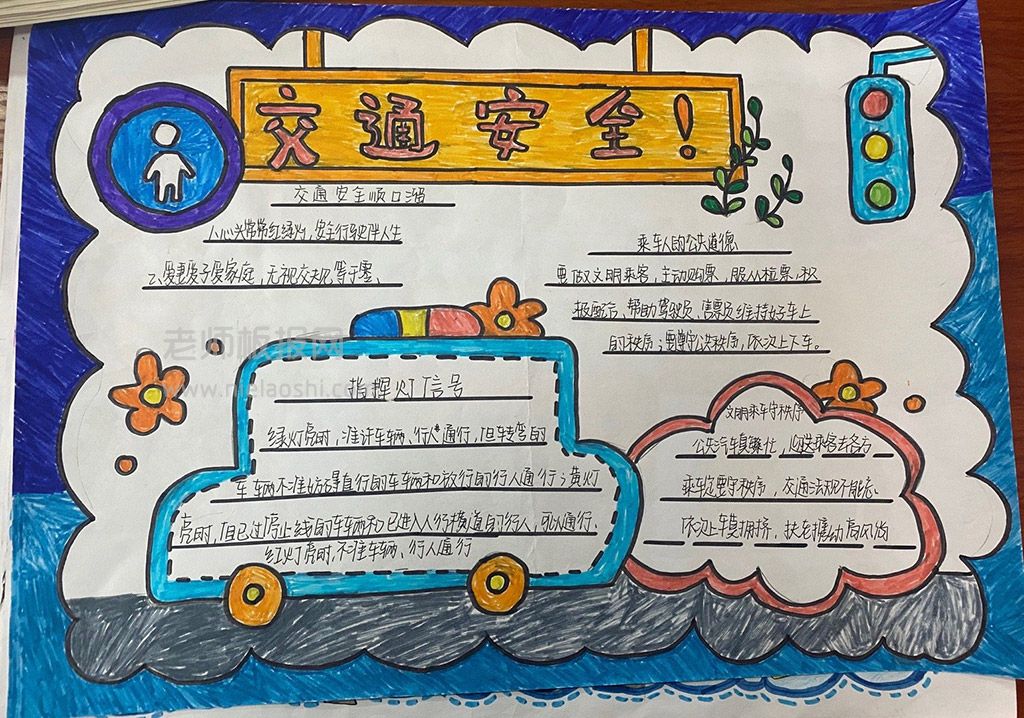 交通安全!
交通安全顺口溜
人心头常常红绿灯,安全行驶伴人生
乘车人的公共道德
2、爱妻爱子爱家庭,无视交规等于零、
要做文明乘客,主动购票,服从检票,积
极配合、帮助驾驶员、售票员维持好车上
的秩序;要遵守公共秩序,依次上下车。
老师板报网
www.mielaoshi.com
指挥灯信号
绿灯亮时,准许车辆、行人通行,但转弯的
车辆不准妨碍直行的车辆和放行的行人通行;黄灯
亮时,但已过停止线的车辆和已进入人行横道的行人,可以通行、
红灯亮时,不准车辆、行人通行
文明乘车守秩序
公共汽车真舒,迎送乘客去各方
乘车定要守秩序,交通法规不能忘、
依次上车莫拥挤,扶老携幼高风尚